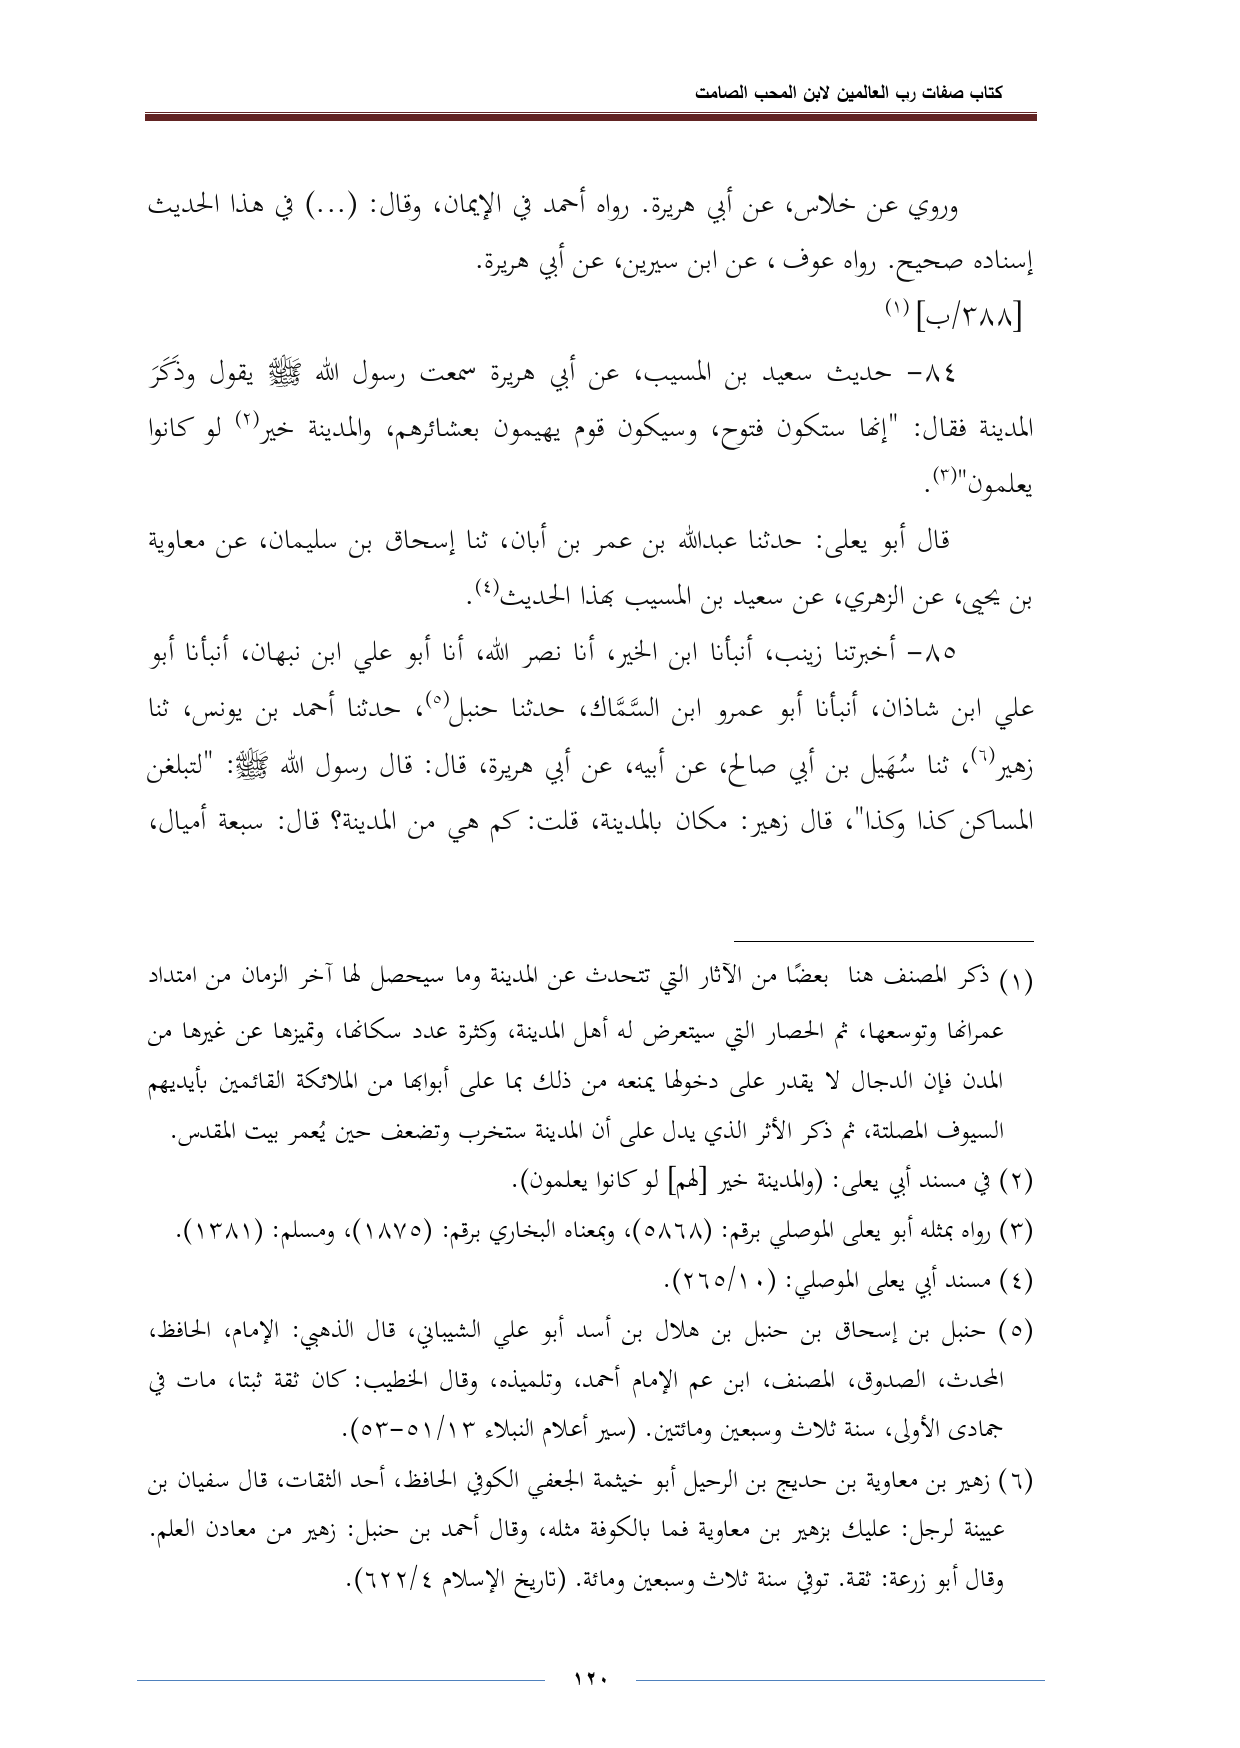 كتاب صفات رب العالمين لابن المحب الصامت
وروي عن خلاس، عن أبي هريرة. رواه أحمد في الإيمان، وقال: (...) في هذا الحديث
إسناده صحيح. رواه عوف ، عن ابن سيرين، عن أبي هريرة.
[٣٨٨/ب] (١)
٨٤- حديث سعيد بن المسيب، عن أبي هريرة سمعت رسول الله ﷺ يقول وذَكَرَ
المدينة فقال: "إنها ستكون فتوح، وسيكون قوم يهيمون بعشائرهم، والمدينة خير(٢) لو كانوا
يعلمون"(٣).
قال أبو يعلى: حدثنا عبدالله بن عمر بن أبان، ثنا إسحاق بن سليمان، عن معاوية
بن يحيى، عن الزهري، عن سعيد بن المسيب بهذا الحديث(٤).
٨٥- أخبرتنا زينب، أنبأنا ابن الخير، أنا نصر الله، أنا أبو علي ابن نبهان، أنبأنا أبو
علي ابن شاذان، أنبأنا أبو عمرو ابن السَّمَّاك، حدثنا حنبل(٥)، حدثنا أحمد بن يونس، ثنا
زهير(٦)، ثنا سُهَيل بن أبي صالح، عن أبيه، عن أبي هريرة، قال: قال رسول الله ﷺ: "لتبلغن
المساكن كذا وكذا"، قال زهير: مكان بالمدينة، قلت: كم هي من المدينة؟ قال: سبعة أميال،
(١) ذكر المصنف هنا بعضًا من الآثار التي تتحدث عن المدينة وما سيحصل لها آخر الزمان من امتداد
عمرانها وتوسعها، ثم الحصار التي سيتعرض له أهل المدينة، وكثرة عدد سكانها، وتميزها عن غيرها من
المدن فإن الدجال لا يقدر على دخولها يمنعه من ذلك بما على أبوابها من الملائكة القائمين بأيديهم
السيوف المصلتة، ثم ذكر الأثر الذي يدل على أن المدينة ستخرب وتضعف حين يُعمر بيت المقدس.
(٢) في مسند أبي يعلى: (والمدينة خير [لهم] لو كانوا يعلمون).
(٣) رواه بمثله أبو يعلى الموصلي برقم: (٥٨٦٨)، وبمعناه البخاري برقم: (١٨٧٥)، ومسلم: (١٣٨١).
(٤) مسند أبي يعلى الموصلي: (٢٦٥/١٠).
(٥) حنبل بن إسحاق بن حنبل بن هلال بن أسد أبو علي الشيباني، قال الذهبي: الإمام، الحافظ،
المحدث، الصدوق، المصنف، ابن عم الإمام أحمد، وتلميذه، وقال الخطيب: كان ثقة ثبتا، مات في
جمادى الأولى، سنة ثلاث وسبعين ومائتين. (سير أعلام النبلاء ٥١/١٣-٥٣).
(٦) زهير بن معاوية بن حديج بن الرحيل أبو خيثمة الجعفي الكوفي الحافظ، أحد الثقات، قال سفيان بن
عيينة لرجل: عليك بزهير بن معاوية فما بالكوفة مثله، وقال أحمد بن حنبل: زهير من معادن العلم.
وقال أبو زرعة: ثقة. توفي سنة ثلاث وسبعين ومائة. (تاريخ الإسلام ٦٢٢/٤).
١٢٠